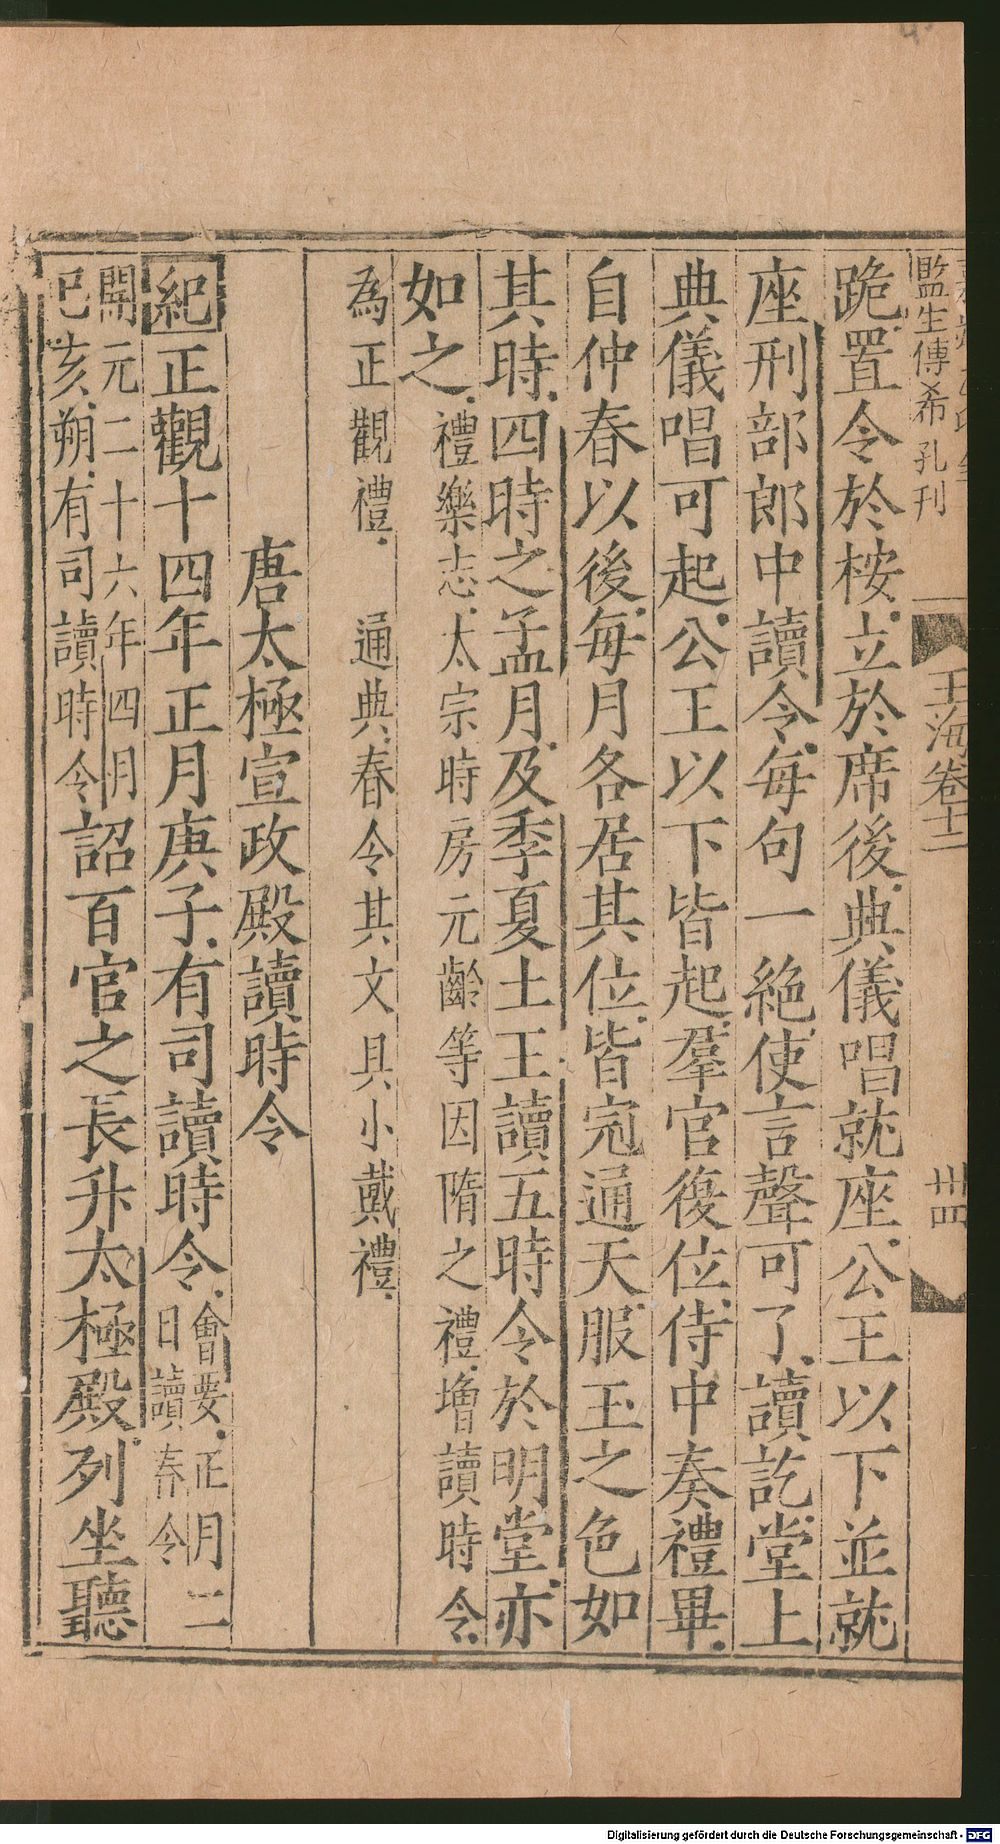 監生傅希孔刊
玉海卷十二
卅四
跪置令於桉立於席後典儀唱就座公王以下並就
座刑部郎中讀令每句一絶使言聲可了讀訖堂上
典儀唱可起公王以下皆起羣官復位侍中奏禮畢
自仲春以後每月各居其位皆冠通天服玉之色如
其時四時之孟月及季夏土王讀五時令於明堂亦
如之禮樂志太宗時房元齡等因隋之禮增讀時令
為正觀禮 通典春令其文具小戴禮
唐太極宣政殿讀時令
紀正觀十四年正月庚子有司讀時令會要正月二
日讀春令
開元二十六年四月
已亥朔有司讀時令詔百官之長升太極殿列坐聽
Digitalisierung gefördert durch die Deutsche Forschungsgemeinschaft - DFG